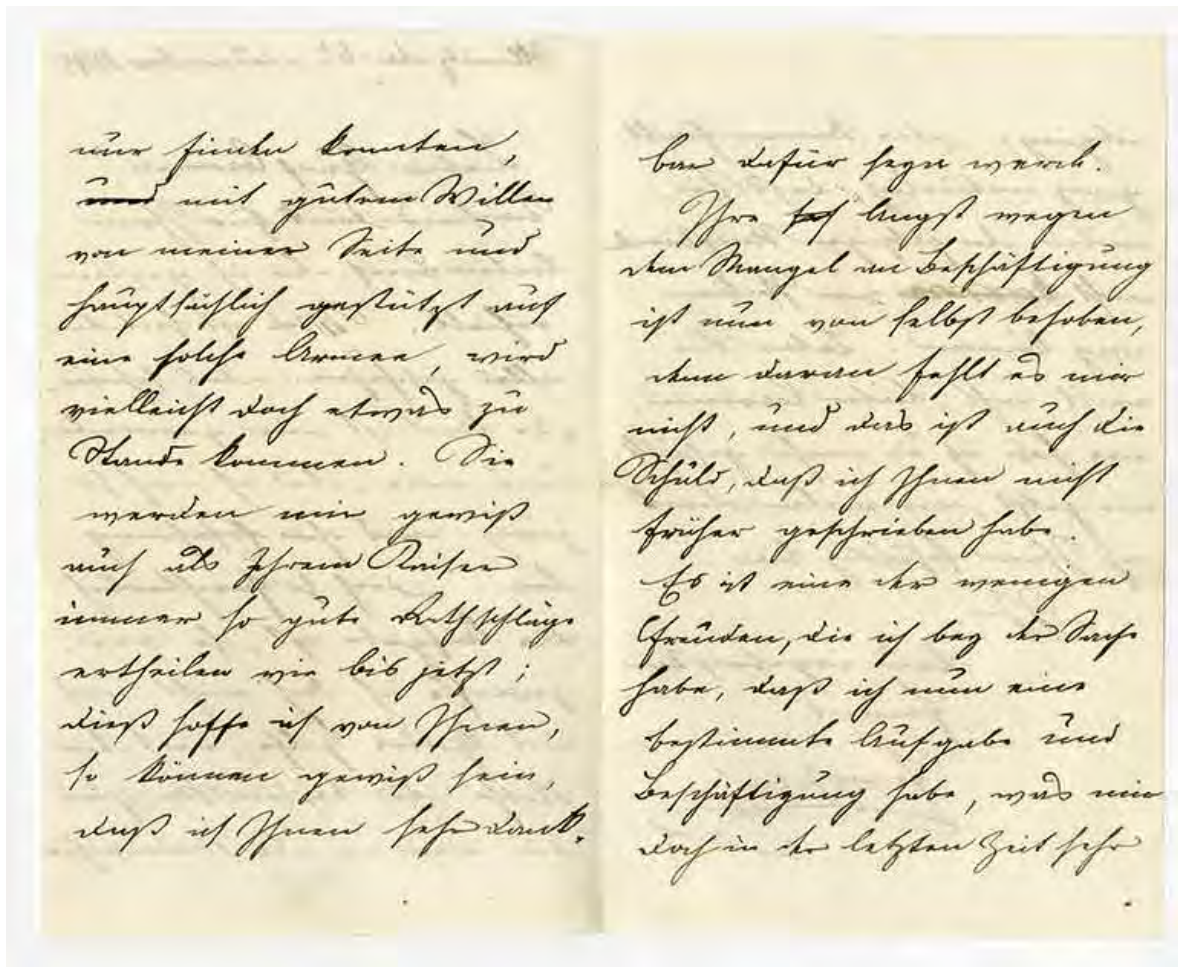 nur finden konnten,
und mit gutem Willen
von meiner Seite und
hauptsächlich gestützt auf
eine solche Armee, wird
vielleicht doch etwas zu
Stande kommen. Sie
werden mir gewiß
auch als Ihrem Kaiser
immer so gute Rathschläge
ertheilen wie bis jetzt;
dieß hoffe ich von Ihnen,
so können gewiß sein,
daß ich Ihnen sehr dank-
bar dafür seyn werde.
Ihre Angst wegen
dem Mangel an Beschäftigung
ist nun von selbst behoben,
denn daran fehlt es mir
nicht, und das ist auch die
Schuld, daß ich Ihnen nicht
früher geschrieben habe.
Es ist eine der wenigen
Freuden, die ich bey der Sache
habe, daß ich nun eine
bestimmte Aufgabe und
Beschäftigung habe, was mir
doch in der letzten Zeit sehr